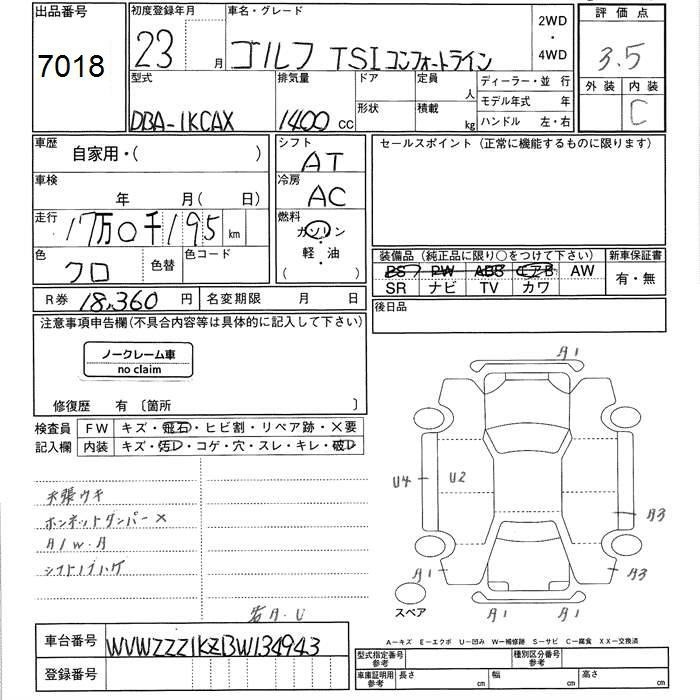 出品番号
7018
初度登録年月
23 月
車名・グレード
ゴルフ TSI コンフォートライン
2WD
・
4WD
評価点
3.5
外装 内装
C
型式
DBA-1KCAX
排気量
1400 CC
ドア
形状
定員
人
積載
kg
ディーラー・並行
モデル年式 年
ハンドル 左・右
車歴
自家用・( )
車検
年 月( 日)
走行
17万0千195 km
色
クロ
色替
色コード
シフト
AT
冷房
AC
燃料
ガソリン
・
軽・油
( )
セールスポイント(正常に機能するものに限ります)
装備品(純正品に限り○をつけて下さい)
PS PW ABS エアB AW
SR ナビ TV カワ
新車保証書
有・無
R券 18,360 円
名変期限 月 日
後日品
注意事項申告欄(不具合内容等は具体的に記入して下さい)
ノークレーム車
no claim
修復歴 有〔箇所 〕
検査員
記入欄
FW キズ・飛石・ヒビ割・リペア跡・×要
内装 キズ・汚れ・コゲ・穴・スレ・キレ・破れ
天張ウキ
ボンネットダンパー×
A/W・A
シフトノブハゲ
A1
U4
U2
A3
A1
A3
A1
A1
スペア
A・U
車台番号
WVWZZZ1KZBW134943
登録番号
A-キズ E-エクボ U-凹み W-補修跡 S-サビ C-腐食 XX-交換済
型式指定番号
参考
種別区分番号
参考
車庫証明用
参考
長さ cm
幅 cm
高さ cm